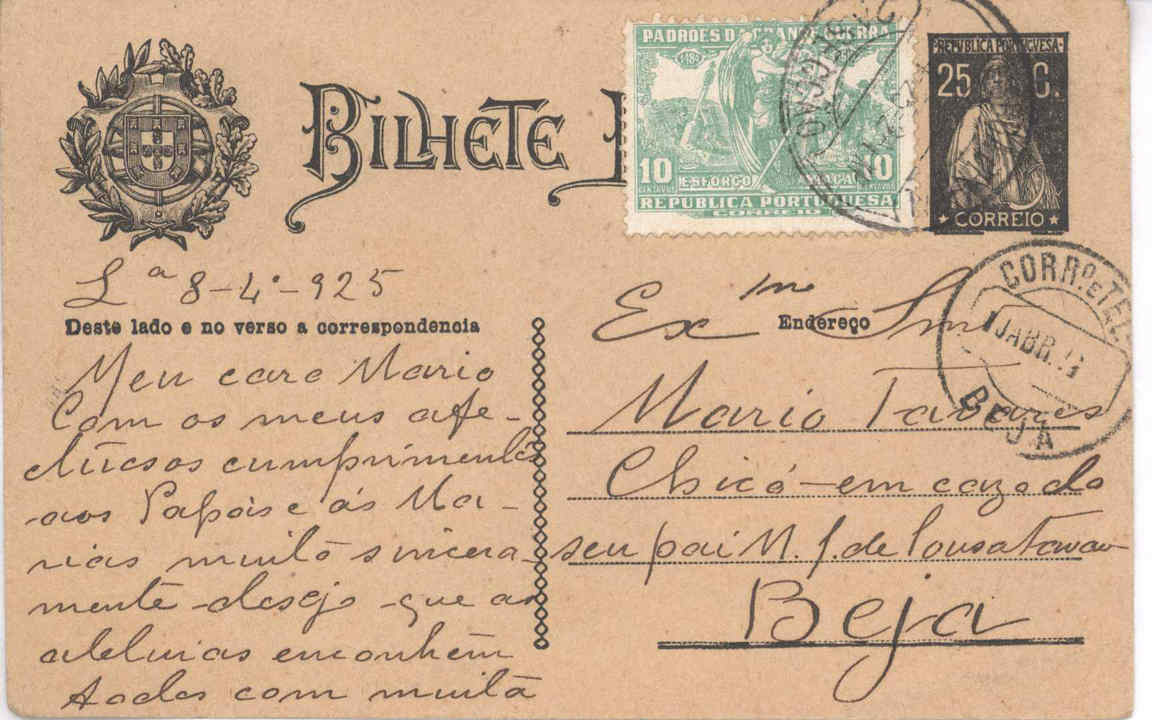 BILHETE
PADRÕES DA GRANDE GUERRA
10 10
CENTAVOS CENTAVOS
ESFORÇO
REPUBLICA PORTUGUESA
CORREIO
REPUBLICA PORTUGUESA
25 C.
CORREIO
CORRO. E TEL.
ABR.
BEJA
Lª 8-4º-925
Deste lado e no verso a correspondencia
Meu caro Mario
Com os meus afe-
ctuosos cumprimentos
aos Papás e ás Ma-
rias muito sincera-
mente desejo que as
aleluias encontrem
todos com muita
Endereço
Exmo Snr
Mario Tavares
Chicó - em caza do
seu pai M. J. de Sousa Tavares
Beja